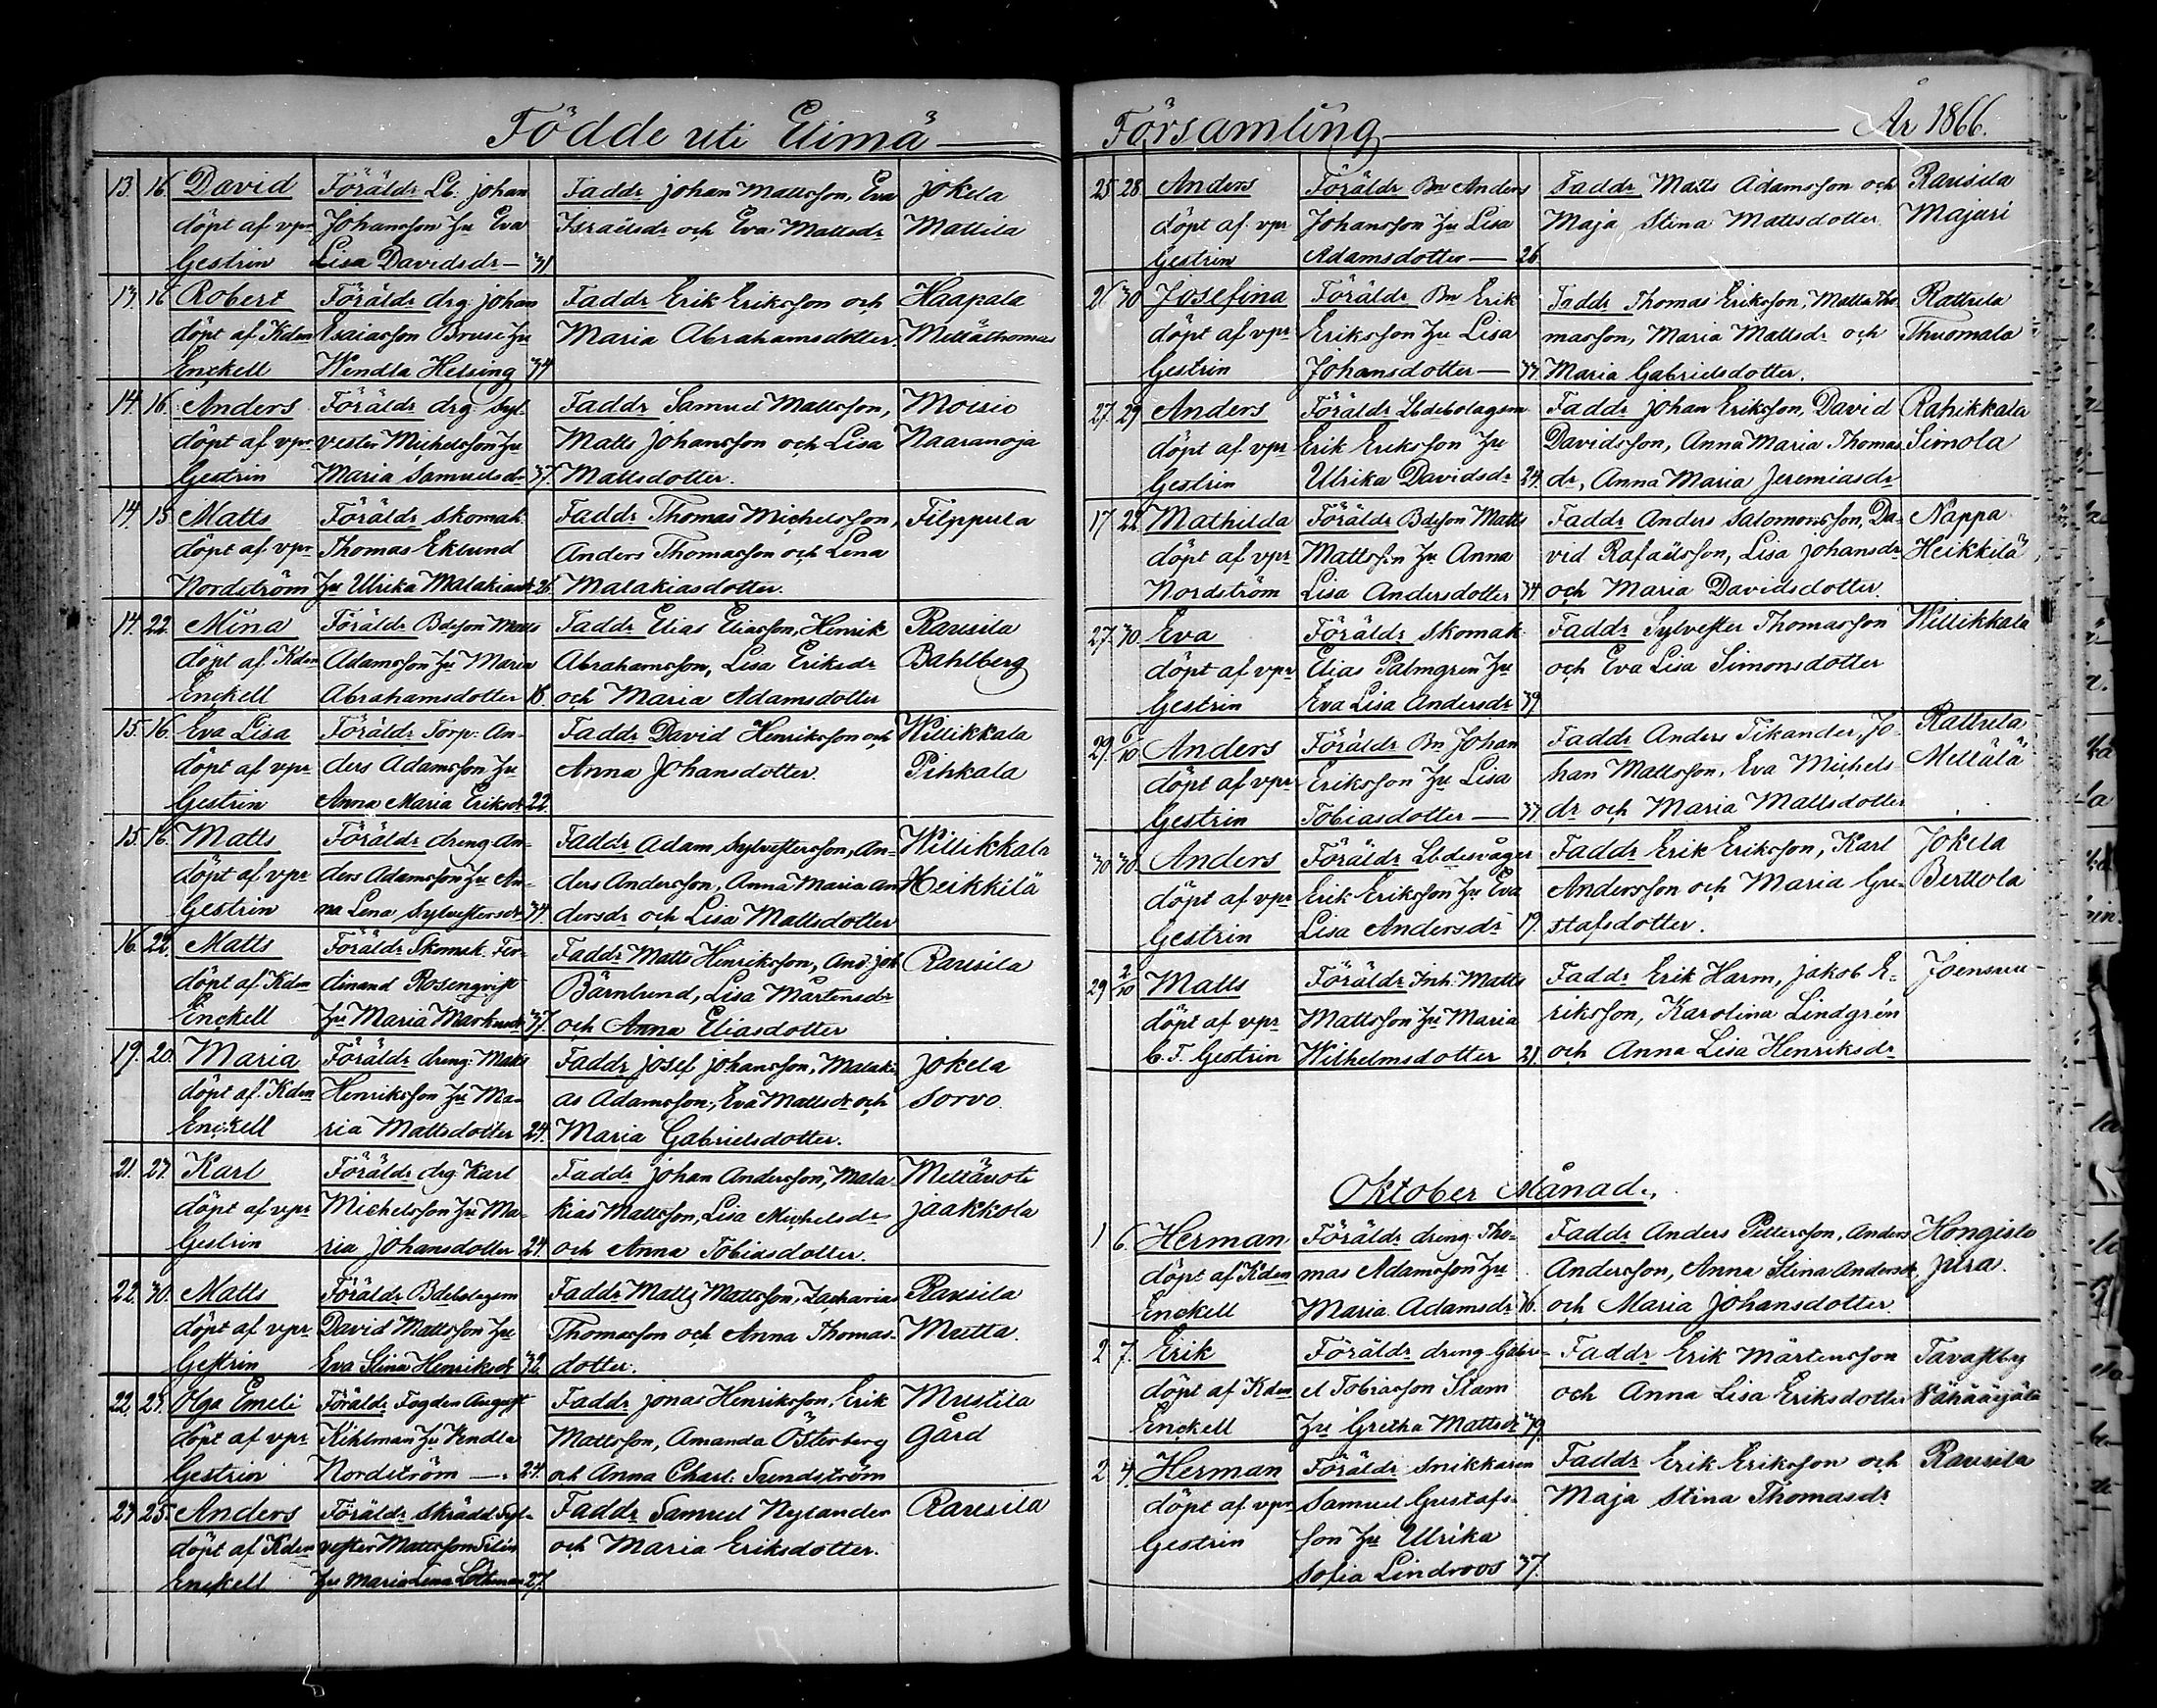 Födde uti Elimä
13. 16. David Föräldr Lb. johan Faddr johan Mattsson, Eva jokela
döpt af vpr Johansson Hu Eva Israelsdr och Eva Mattsdr Mattila
Gestrin Lisa Davidsdr — 31
13. 16 Robert Föräldr drg: johan Faddr Erik Eriksson och Haapala
döpt af Kdn Esaiasson Bruse Hu Maria Abrahamsdotter. Mettäthomas
Enckell Wendla Helsing 34
14. 16. Anders Föräldr drg. Syl- Faddr Samuel Mattsson, Moisio
döpt af vpr vester Michelsson Hu Matts Johansson och Lisa Naaranoja
Gestrin Maria Samuelsdr 37. Mattsdotter.
14. 15. Matts Föräldr skomak. Faddr Thomas Michelsson, Filppula
döpt af vpr Thomas Eklund Anders Thomasson och Lena
Nordström Hu Ulrika Malakiasdr 26. Malakiasdotter.
14. 22. Mina Föräldr Bdeson Matts Faddr Elias Eliasson, Henrik Rausila
döpt af Kdn Adamsson Hu Maria Abrahamsson, Lisa Eriksdr Bahlberg
Enckell Abrahamsdotter 18. och Maria Adamsdotter
15. 16. Eva Lisa Föräldr Torp. An- Faddr David Henriksson och Willikkala
döpt af vpr ders Adamsson Hu Anna Johansdotter. Pihkala
Gestrin Anna Maria Eriksdr 22.
15. 16. Matts Föräldr dreng An- Faddr Adam Sylvestersson, An- Willikkala
döpt af vpr ders Adamsson Hu An- ders Andersson, Anna Maria An Heikkilä
Gestrin na Lena Sylvestersdr 34. dersdr och Lisa Mattsdotter
16. 22. Matts Föräldr Skomak. Fer- Faddr Matts Henriksson, And. joh Rausila
döpt af Kdn dinand Rosenqvist Bärnlund, Lisa Mårtensdr
Enckell Hu Maria Markusdr 37. och Anna Eliasdotter
19. 20. Maria Föräldr dreng: Matts Faddr josef johansson, Malaki- jokela
döpt af Kdn Henriksson Hu Ma- as Adamsson, Eva Mattsdr och Sorvo.
Enckell ria Mattsdotter 24. Maria Gabrielsdotter.
21. 27. Karl Föräldr drg. Karl Faddr johan Andersson, Mala- Mettäuoti
döpt af vpr Michelsson Hu Ma- kias Mattsson, Lisa Michelsdr jaakkola
Gestrin ria Johansdotter 24. och Anna Tobiasdotter.
22. 30. Matts Föräldr Bdebolagsm Faddr Matts Mattsson, Zacharias Rausila
döpt af vpr David Mattsson Hu Thomasson och Anna Thomas- Mutta.
Gestrin Eva Stina Henriksdr 32. dotter.
22. 25. Olga Emeli Föräldr Fogden August Faddr jonas Henriksson, Erik Mustila
döpt af vpr Kihlman Hu Vendla Mattsson, Amanda Österberg gård
Gestrin Nordström —. 24. och Anna Charl. Sundström
23 25. Anders Föräldr skrädd. Syl- Faddr Samuel Nylander Rausila
döpt af Kdn vester Mattsson Silén och Maria Eriksdotter.
Enckell Hu Maria Lena Lothman 27.
Församling År 1866.
25. 28. Anders Föräldr Bn Anders Faddr Matts Adamsson och Rausila
döpt af vpr Johansson Hu Lisa Maja Stina Mattsdotter. Majuri
Gestrin Adamsdotter — 26
26 30 Josefina Föräldr Bn Erik Faddr Thomas Eriksson, Matts Tho- Rattula
döpt af vpr Eriksson Hu Lisa masson, Maria Mattsdr och Thuomala
Gestrin Johansdotter — 34. Maria Gabrielsdotter.
27. 29 Anders Föräldr Lbdebolagsm Faddr johan Eriksson, David Rahikkala
döpt af vpr Erik Eriksson Hu Davidsson, Anna Maria Thomas Simola
Gestrin Ulrika Davidsdr 24. dr, Anna Maria Jeremiasdr
17 22 Mathilda Föräldr Bdeson Matts Faddr Anders Salomonsson, Da- Nappa
döpt af vpr Mattsson Hu Anna vid Rafaelsson, Lisa johansdr Heikkilä
Nordström Lisa Andersdotter 34 och Maria Davidsdotter.
27. 30. Eva Föräldr skomak. Faddr Sylvester Thomasson Willikkala
döpt af vpr Elias Palmgren Hu och Eva Lisa Simonsdotter
Gestrin Eva Lisa Andersdr 39
29. 6/10 Anders Föräldr Bn Johan Faddr Anders Tikander, Jo- Rattula
döpt af vpr Eriksson Hu Lisa han Mattsson, Eva Michels Mettälä
Gestrin Tobiasdotter — 37. dr och Maria Mattsdotter
30 30. Anders Föräldr Lbdesvåger Faddr Erik Eriksson, Karl Jokela
döpt af vpr Erik Eriksson Hu Eva Andersson och Maria Gu- Berttola
Gestrin Lisa Andersdr 19. stafsdotter.
29 2/10 Matts Föräldr Inh. Matts Faddr Erik Harm, jakob E- Joensuu
döpt af vpr Mattsson Hu Maria riksson, Karolina Lindgrén
C. F. Gestrin Wilhelmsdotter 21. och Anna Lisa Henriksdr
Oktober Månad.
1 6. Herman Föräldr dreng. Tho- Faddr Anders Pettersson, Anders Hongisto
döpt af Kdn mas Adamsson Hu Andersson, Anna Stina Andersdr jura.
Enckell Maria Adamsdr 36. och Maria Johansdotter.
2 7. Erik Föräldr dreng Gabri- Faddr Erik Mårtensson Tavastby
döpt af Kdn el Tobiasson Stam och Anna Lisa Eriksdotter
Enckell Hu Gretha Mattsdr 39.
2 4. Herman Föräldr Snikkaren Faddr Erik Eriksson och Rausila
döpt af vpr Samuel Gustafs- Maja Stina Thomasdr
Gestrin son Hu Ulrika
Sofia Lindroos 37.